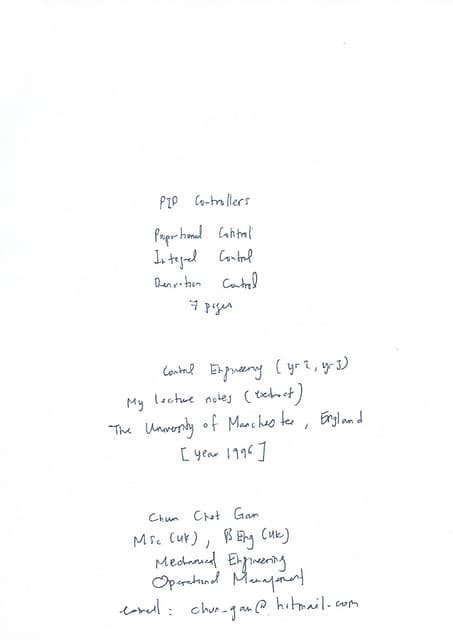 PID Controllers
Proportional Control
Integral Control
Derivation Control
7 pages
Control Engineering (yr 2, yr 3)
My lecture notes (extract)
The University of Manchester, England
[year 1996]
Chun Chet Gan
MSc (UK), BEng (UK)
Mechanical Engineering
Operational Management
email: chun-gan@hotmail.com